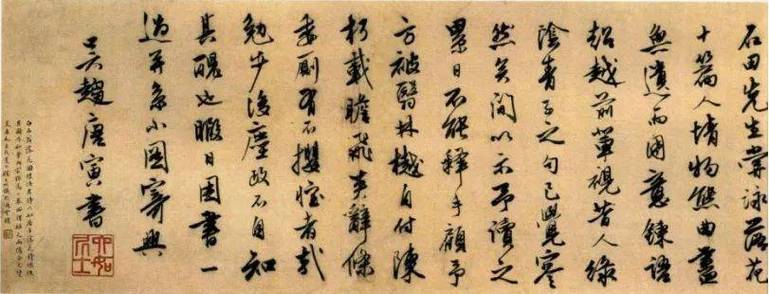 石田先生嘗詠落花
十篇人情物態曲盡
無遺而用意鍊語
超越前輩視昔人綠
陰青子之句已覺寥
然矣間以示予讀之
累日不能釋手顧予
方被醫林樾自付陳
朽載瞻飛英辭條
委廁有不攖懷者哉
勉步後塵政不自知
其醜也暇日因書一
過并系小圖寄興
吳趨唐寅書
六如居士